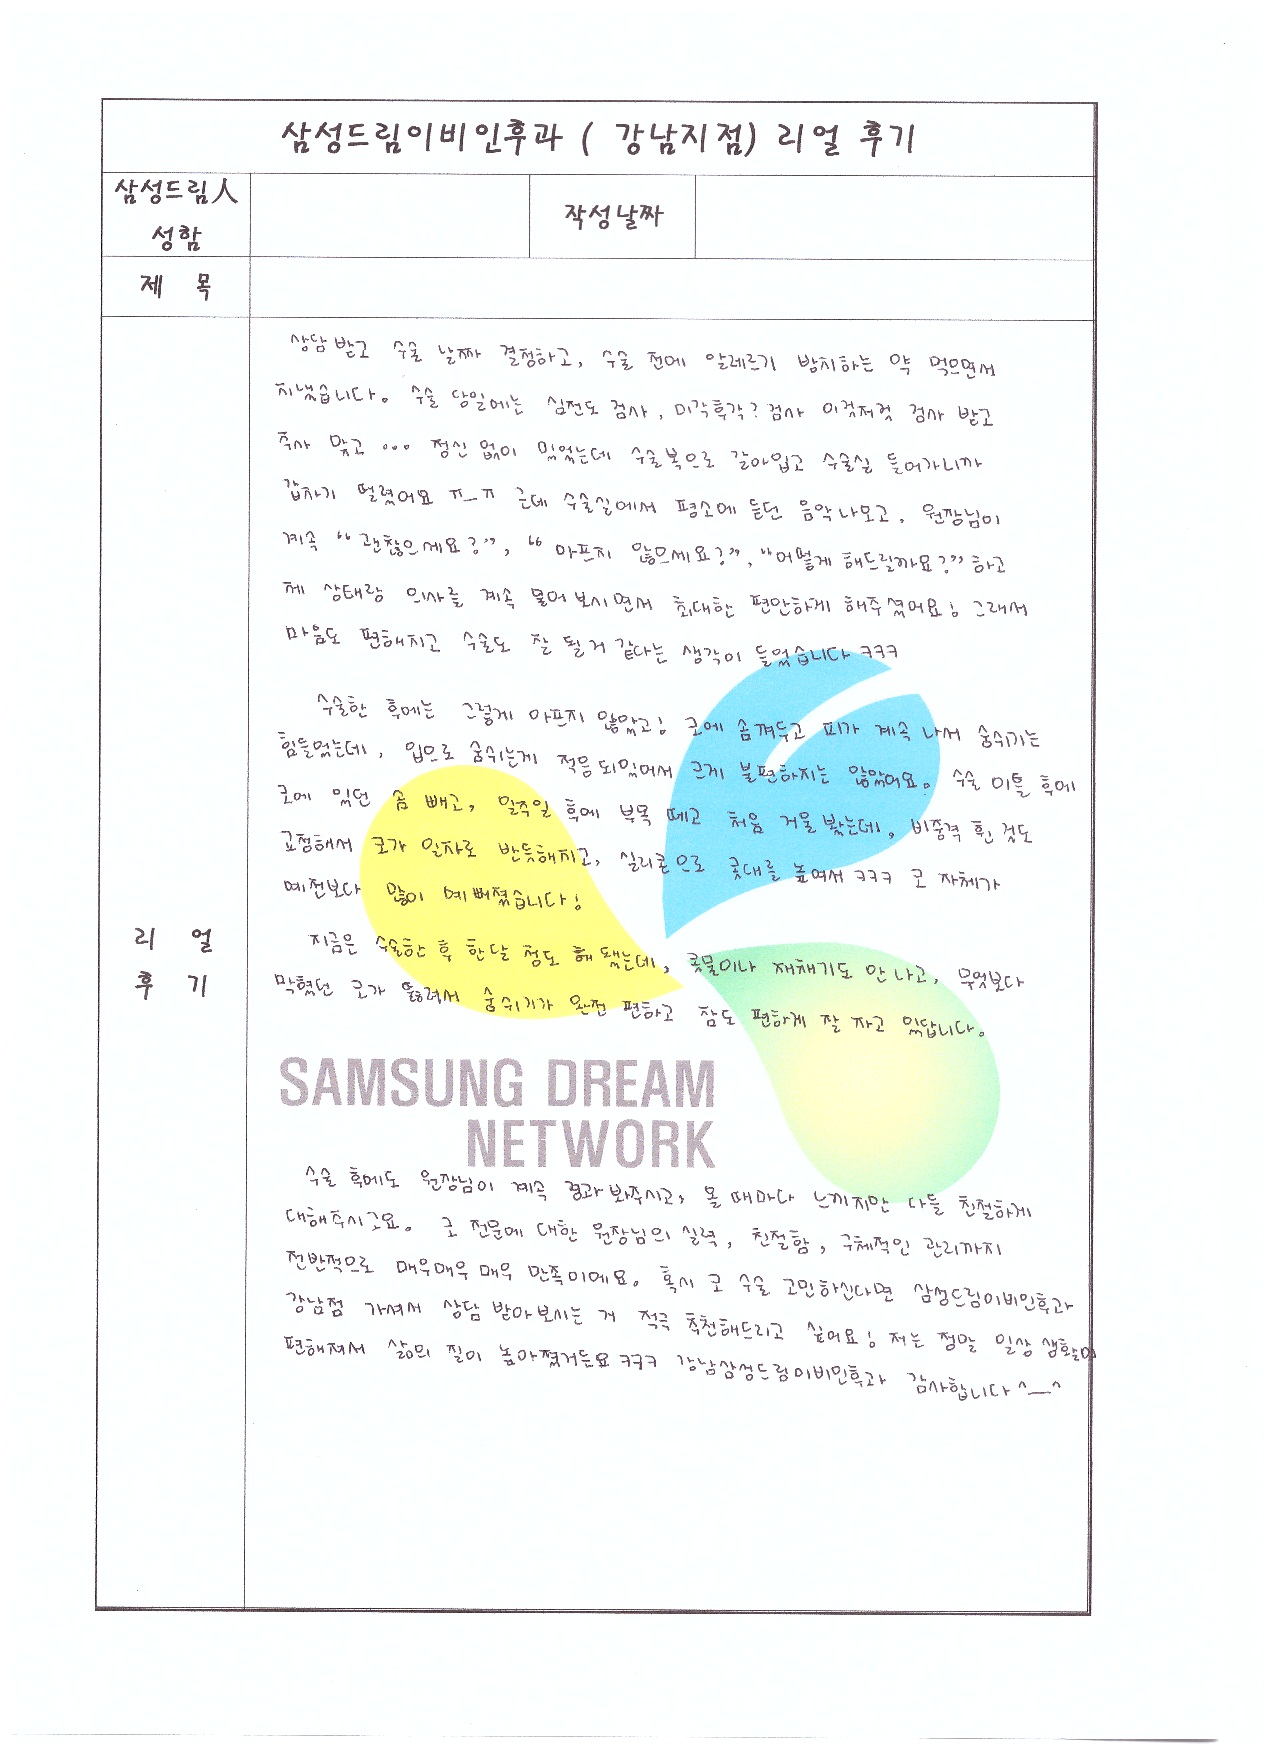 삼성드림이비인후과 ( 강남지점) 리얼 후기
삼성드림人
성함
작성날짜
제 목
상담받고 수술 날짜 결정하고, 수술 전에 알레르기 방지하는 약 먹으면서
지냈습니다. 수술 당일에는 심전도 검사, 미각후각? 검사 이것저것 검사 받고
주사 맞고 ... 정신 없이 있었는데 수술복으로 갈아입고 수술실 들어가니까
갑자기 떨렸어요 ㅠ_ㅠ 근데 수술실에서 평소에 듣던 음악나오고, 원장님이
계속 “괜찮으세요?”, “아프지 않으세요?”, “어떻게 해드릴까요?” 하고
제 상태랑 의사를 계속 물어보시면서 최대한 편안하게 해주셨어요! 그래서
마음도 편해지고 수술도 잘 될거 같다는 생각이 들었습니다 ㅋㅋㅋ
수술한 후에는 그렇게 아프지 않았고! 코에 솜껴두고 피가 계속 나서 숨쉬기는
힘들었는데, 입으로 숨쉬는게 적응되있어서 크게 불편하지는 않았어요. 수술 이틀 후에
코에 있던 솜 빼고, 일주일 후에 부목 떼고 처음 거울 봤는데, 비중격 휜 것도
교정해서 코가 일자로 반듯해지고, 실리콘으로 콧대를 높여서 ㅋㅋㅋ 코 자체가
예전보다 많이 예뻐졌습니다!
리 얼
후 기
지금은 수술한 후 한달 정도 돼 됐는데, 콧물이나 재채기도 안 나고, 무엇보다
막혔던 코가 뚫려서 숨쉬기가 완전 편하고 잠도 편하게 잘 자고 있답니다.
SAMSUNG DREAM
NETWORK
수술 후에도 원장님이 계속 경과 봐주시고, 올 때마다 느끼지만 다들 친절하게
대해주시구요. 코 전문에 대한 원장님의 실력, 친절함, 구체적인 관리까지
전반적으로 매우매우 매우 만족이에요. 혹시 코 수술 고민하신다면 삼성드림이비인후과
강남점 가셔서 상담 받아보시는 거 적극 추천해드리고 싶어요! 저는 정말 일상 생활이
편해져서 삶의 질이 높아졌거든요 ㅋㅋㅋ 강남삼성드림이비인후과 감사합니다 ^__^